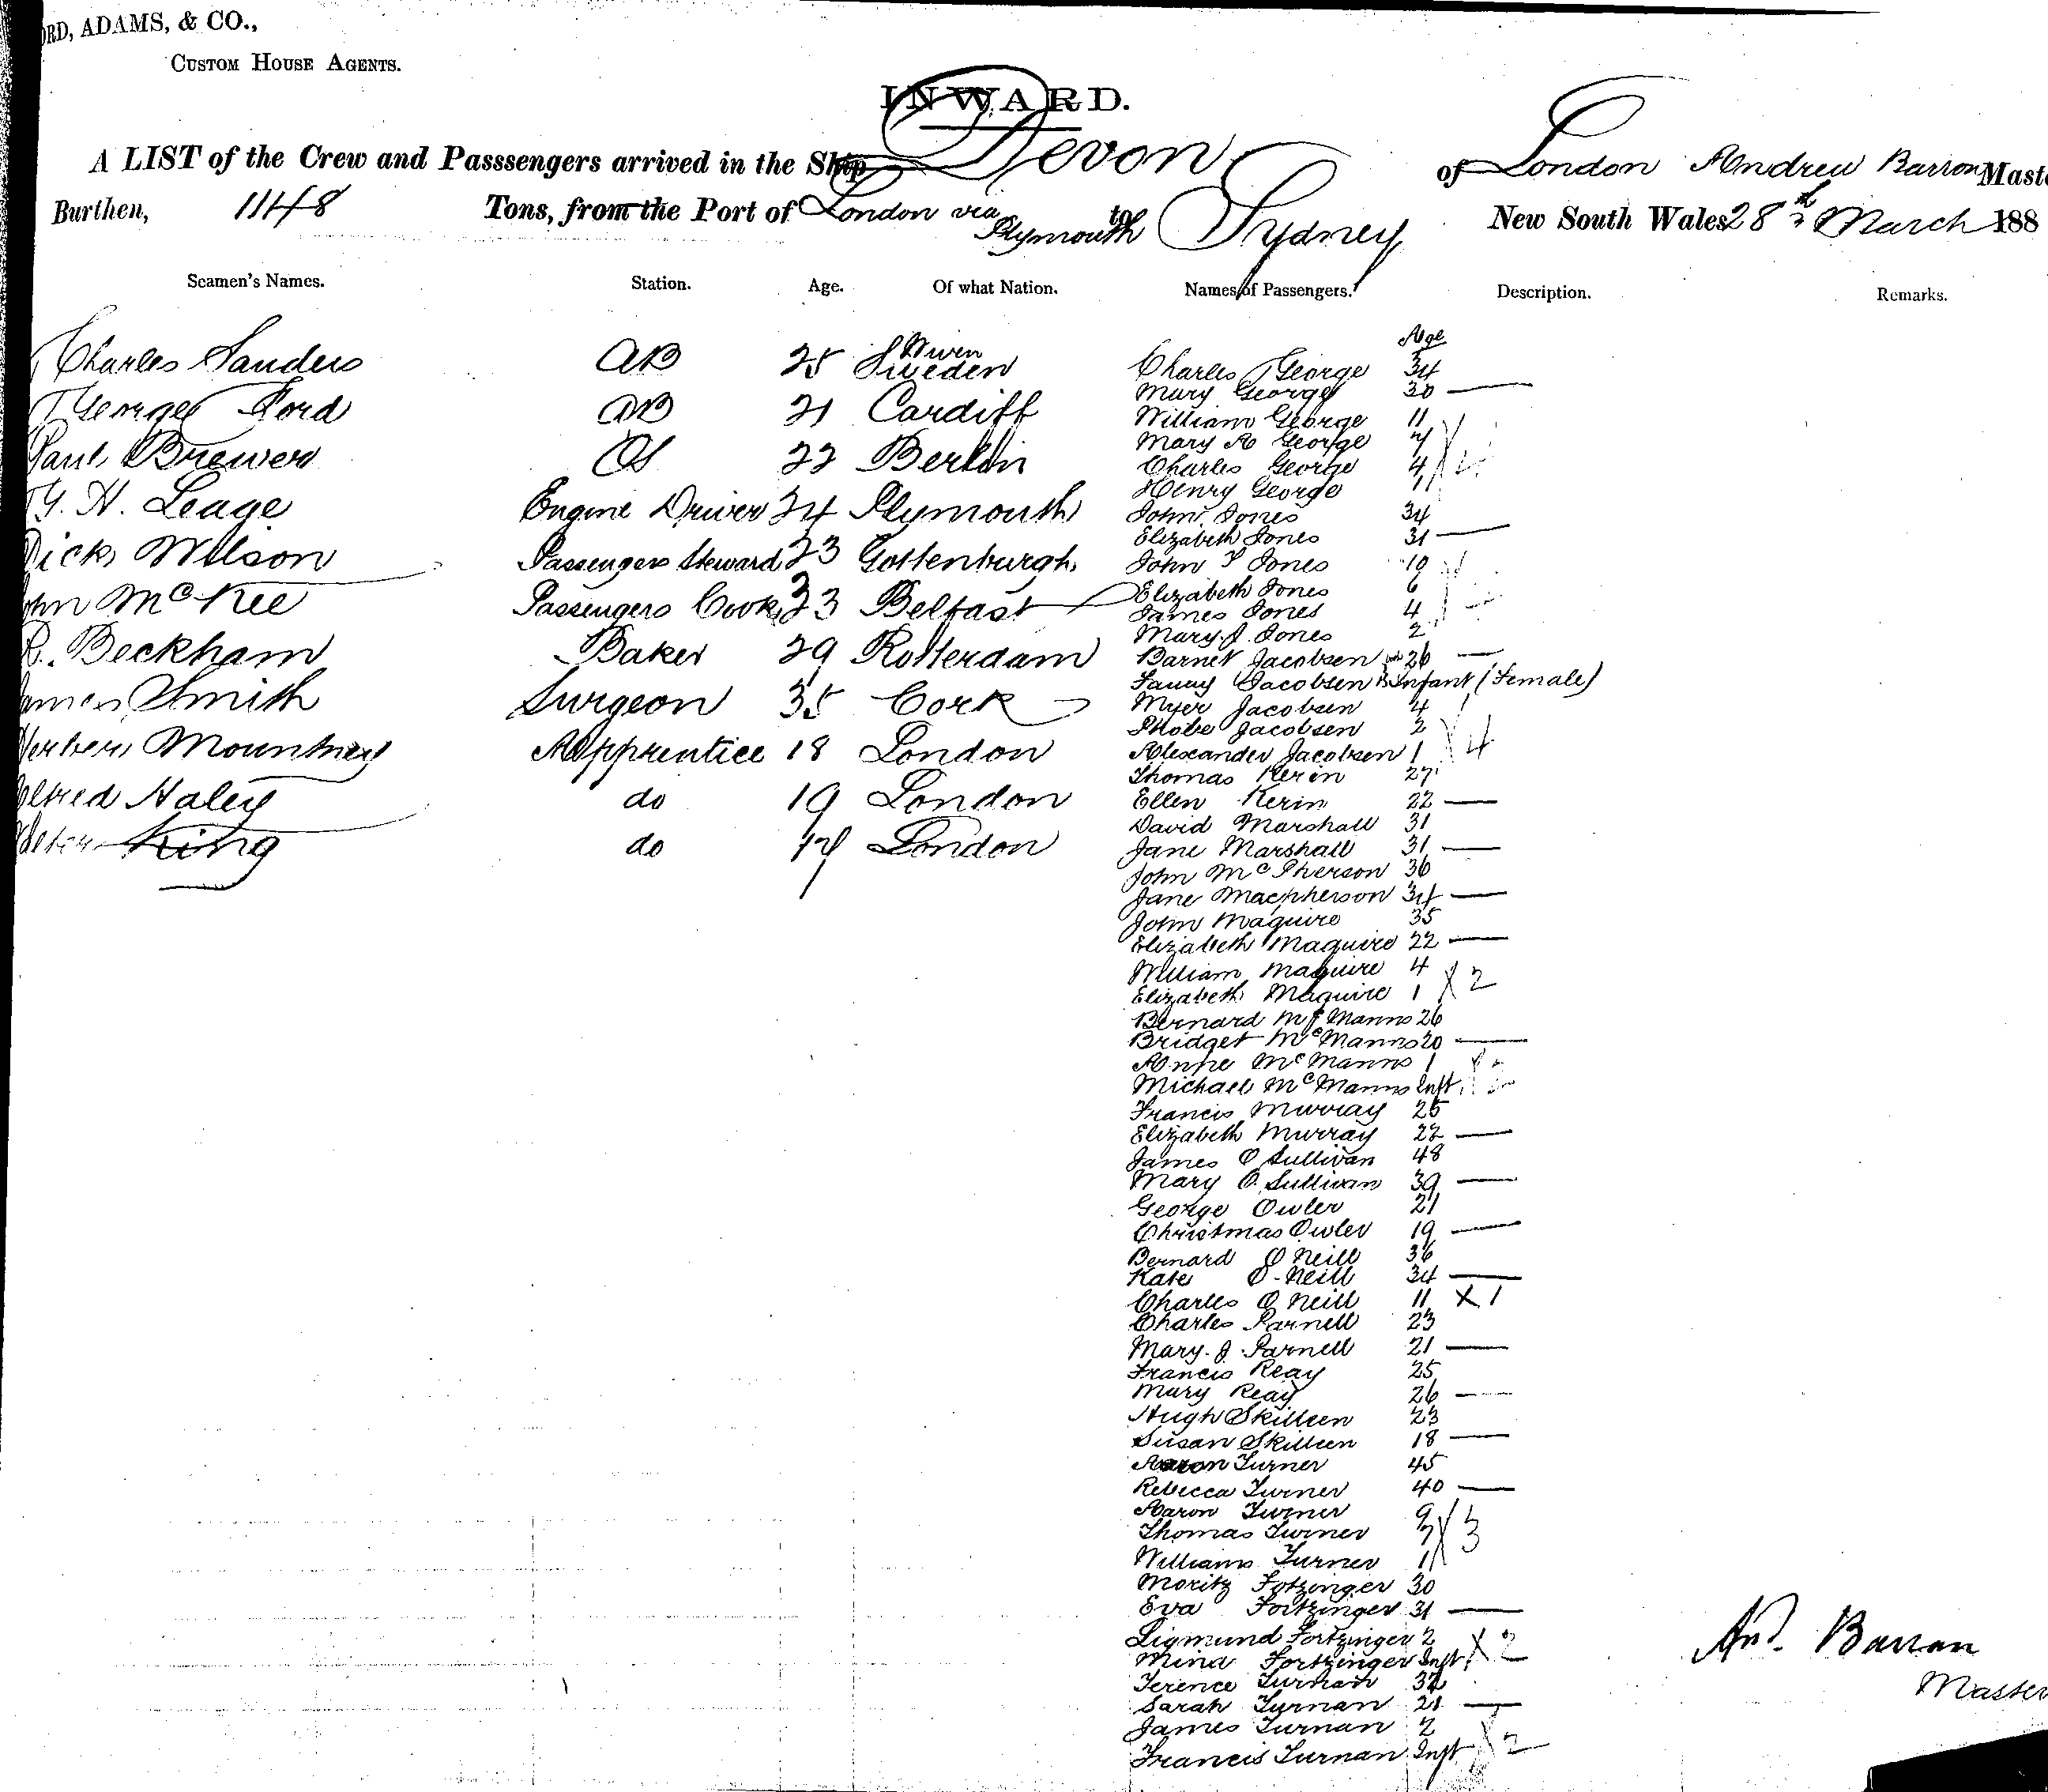 ORD, ADAMS, & CO.,
CUSTOM HOUSE AGENTS.
INWARD.
A LIST of the Crew and Passsengers arrived in the Ship Devon of London Andrew Barron Maste
Burthen, 1148 Tons, from the Port of London via Plymouth to Sydney New South Wales 28th March 188
Seamen's Names. Station. Age. Of what Nation. Names of Passengers. Description. Remarks.
Age
Charles Sanders AB 25 Sweden
George Ford AB 21 Cardiff
Paul Brewer OS 22 Berlin
H. Leage Engine Driver 24 Plymouth
Dick Wilson Passengers Steward 23 Gottenburgh
ohn McKee Passengers Cook 23 Belfast
R. Beckham Baker 29 Rotterdam
ames Smith Surgeon 35 Cork
Herbert Mountney Apprentice 18 London
lfred Haley do 19 London
King do London
Charles George 34
Mary George 30
William George 11
Mary A George 7
Charles George 4
Henry George 1
John Jones 34
Elizabeth Jones 31
John T Jones 10
Elizabeth Jones 6
James Jones 4
Mary J. Jones 2
Barnet Jacobsen 26
Fanny Jacobsen Infant (Female)
Myer Jacobsen 4
Phobe Jacobsen 2
Alexander Jacobsen 1 4
Thomas Kerin 27
Ellen Kerin 22
David Marshall 31
Jane Marshall 31
John McPherson 36
Jane Macpherson 34
John Maguire 35
Elizabeth Maguire 22
William Maguire 4
Elizabeth Maguire 1 X 2
Bernard McManns 26
Bridget McManns 20
Anne McManns 1
Michael McManns Inft
Francis Murray 25
Elizabeth Murray 22
James O Sullivan 48
Mary O. Sullivan 39
George Owler 21
Christmas Owler 19
Bernard O Neill 36
Kate O-Neill 34
Charles O Neill 11 X 1
Charles Parnell 23
Mary. J. Parnell 21
Francis Reay 25
Mary Reay 26
Hugh Skilleen 23
Susan Skilleen 18
Aaron Turner 45
Rebecca Turner 40
Aaron Turner 9
Thomas Turner 7 X 3
William Turner 1
Moritz Fotzinger 30
Eva Fortzinger 31
Sigmund Fortzinger 2
Mina Fortzinger Inft X 2
Terence Turnan 32
Sarah Turnan 28
James Turnan 2
Francis Turnan Inft X 2
And. Barron
Master